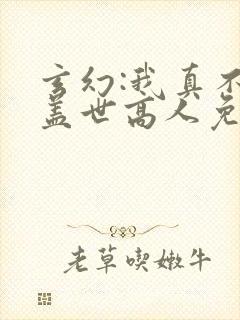 玄幻:我真不
盖世高人免
老草喫嫩牛